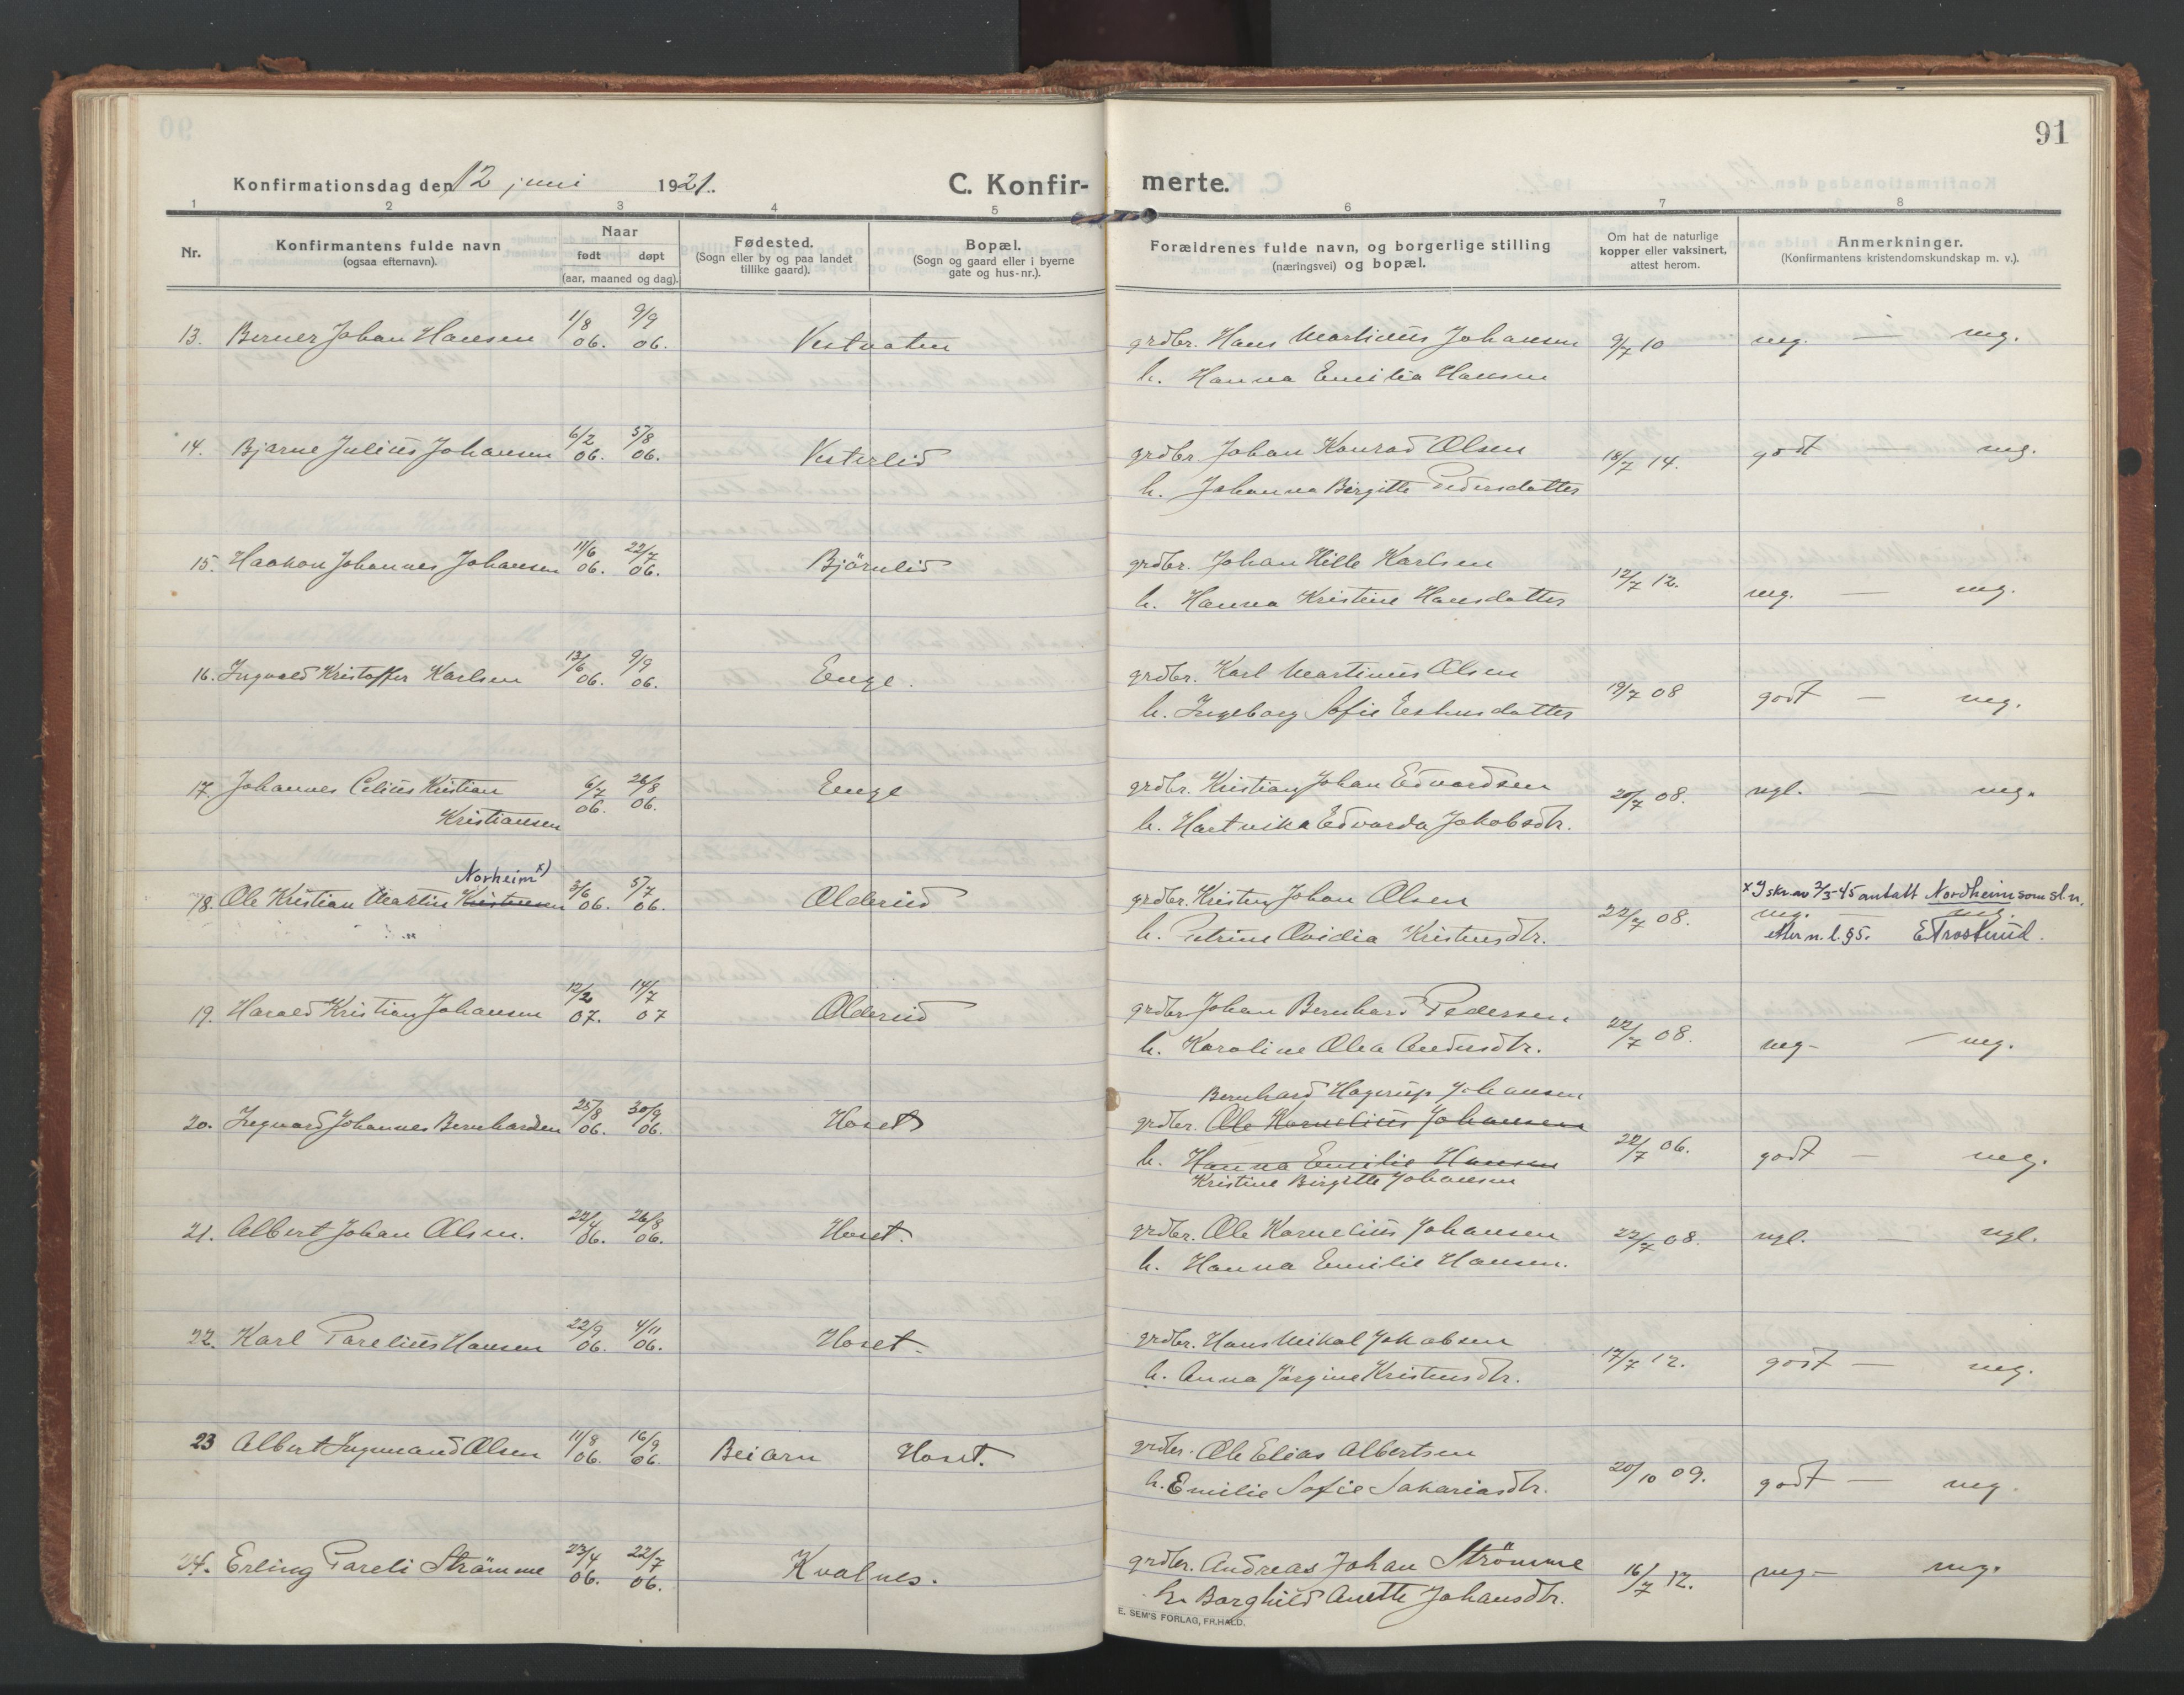 91
Konfirmationsdag den 12 juni 1921.
C. Konfir- merte.
1 2 3 4 5 6 7 8
Nr.
Konfirmantens fulde navn
(ogsaa efternavn).
Naar
født døpt
(aar, maaned og dag).
Fødested.
(Sogn eller by og paa landet
tillike gaard).
Bopæl.
(Sogn og gaard eller i byerne
gate og hus-nr.).
Forældrenes fulde navn, og borgerlige stilling
(næringsvei) og bopæl.
Om hat de naturlige
kopper eller vaksinert,
attest herom.
Anmerkninger.
(Konfirmantens kristendomskundskap m. v.).
13. Berner Johan Hansen 1/8 06. 9/9 06. Vestvaten grdbr. Hans Martinus Johansen 9/7 10 mg. — mg.
h. Hanna Emilia Hansen
14. Bjarne Julius Johansen 6/2 06. 5/8 06. Vesterlid grdbr Johan Konrad Olsen 18/7 14. godt — mg.
h. Johanna Birgitte Pedersdatter
15. Haakon Johannes Johansen 11/6 06. 22/7 06. Björnlid grdbr. Johan Hille Karlsen 12/7 12. mg. — mg.
h. Hanna Kristine Hansdatter
16. Ingvald Kristoffer Karlsen 13/6 06. 9/9 06. Enge. grdbr. Karl Martinus Olsen 19/7 08 godt — mg.
h. Ingeborg Sofie Eshusdatter
17. Johannes Celius Kristian 6/7 06. 26/8 06. Enge grdbr. Kristian Johan Edvardsen 20/7 08. ngl. — mg.
Kristiansen h. Hartvika Edvarda Jakobsdtr.
Norheim x)
18. Ole Kristian Martin Kristensen 3/6 06. 5/7 06. Olderiid grdbr. Kristen Johan Olsen 22/7 08. x I skr. av 2/3-45 antatt Nordheim som sl.n.
mg. — mg.
h. Petrine Ovidia Kristensdtr. etter n.l. §5. E Trosterud.
19. Harald Kristian Johansen 12/2 07. 14/7 07 Olderiid grdbr Johan Bernhard Pedersen 22/7 08. mg — mg.
h. Karoline Olea Andersdtr.
Bernhard Hagerup Johansen
20. Ingvard Johannes Bernhardsen 25/8 06. 30/9 06. Hoset grdbr. Ole Kornelius Johansen 22/7 06. godt — mg.
h. Hanna Emilie Hansen
Kristine Birgitte Johansen
21. Albert Johan Olsen. 22/4 06. 26/8 06. Hoset. grdbr. Ole Kornelius Johansen 22/7 08. ngl. — ngl.
h. Hanna Emilie Hansen.
22. Karl Parelius Hansen 22/9 06. 4/11 06. Hoset. grdbr. Hans Mikal Jakobsen 17/7 12. godt — mg.
h. Anna Jörgine Kristensdtr.
23 Albert Ingemand Olsen 11/8 06. 16/9 06. Beiarn Hoset. grdbr. Ole Elias Albertsen 20/10 09. godt — mg.
h. Emilie Sofie Sakariasdtr.
24. Erling Pareli Strömme 23/4 06. 22/7 06. Kvalnes. grdbr. Andreas Johan Strömme 16/7 12. mg — mg.
h. Borghild Anette Johansdtr.
E. SEM'S FORLAG, FR.HALD.